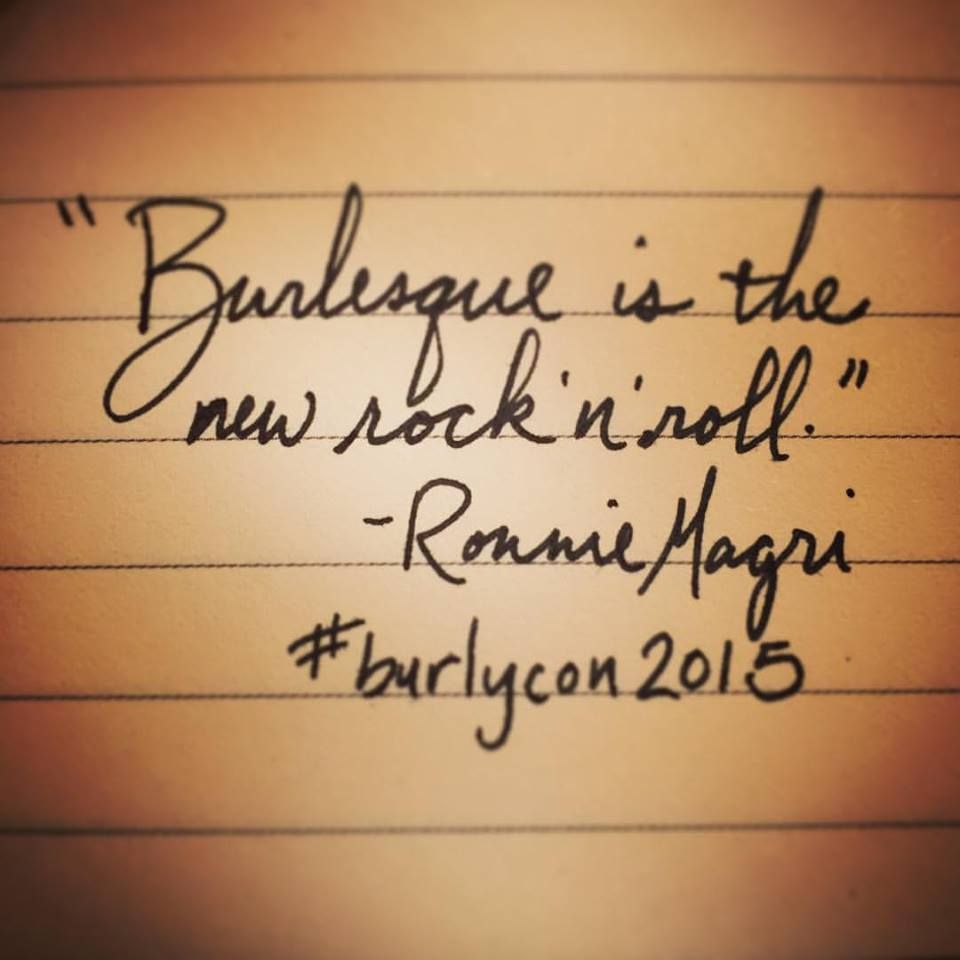 "Burlesque is the
new rock 'n' roll."
-Ronnie Magri
#burlycon2015